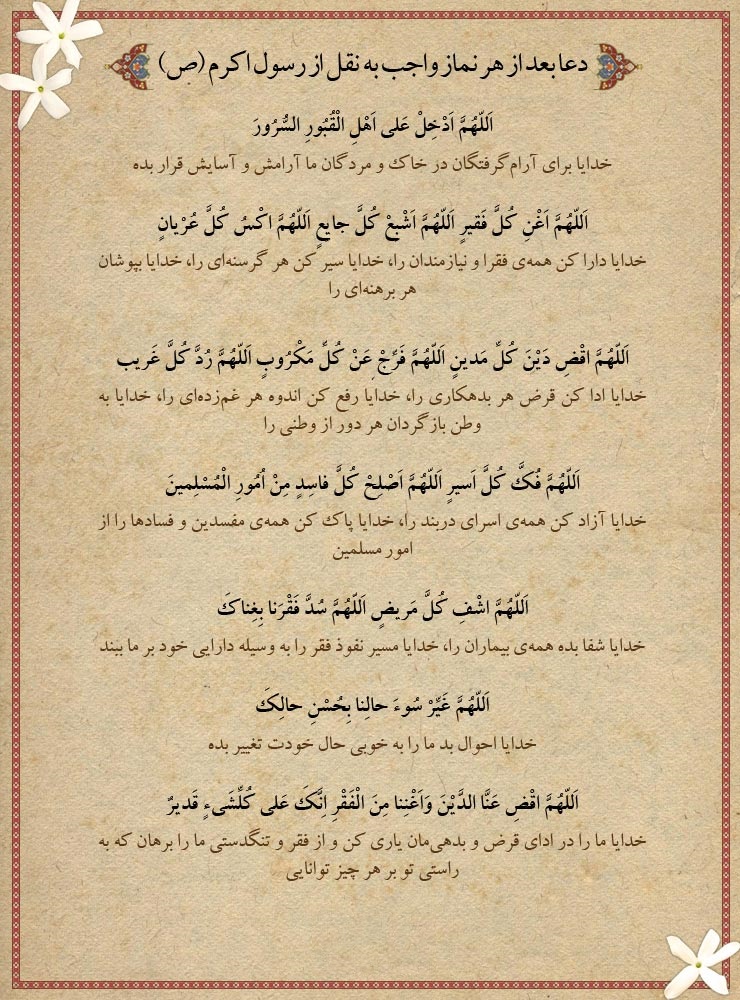 دعا بعد از هر نماز واجب به نقل از رسول اکرم (ص)
اَللّهُمَّ اَدْخِلْ عَلی اَهْلِ الْقُبُورِ السُّرُورَ
خدایا برای آرام‌گرفتگان در خاک و مردگان ما آرامش و آسایش قرار بده
اَللّهُمَّ اَغْنِ کُلَّ فَقیرٍ اَللّهُمَّ اَشْبِعْ کُلَّ جایِعٍ اَللّهُمَّ اکْسُ کُلَّ عُرْیانٍ
خدایا دارا کن همه‌ی فقرا و نیازمندان را، خدایا سیر کن هر گرسنه‌ای را، خدایا بپوشان
هر برهنه‌ای را
اَللّهُمَّ اقْضِ دَیْنَ کُلِّ مَدینٍ اَللّهُمَّ فَرِّجْ عَنْ کُلِّ مَکْرُوبٍ اَللّهُمَّ رُدَّ کُلَّ غَریب
خدایا ادا کن قرض هر بدهکاری را، خدایا رفع کن اندوه هر غم‌زده‌ای را، خدایا به
وطن بازگردان هر دور از وطنی را
اَللّهُمَّ فُکَّ کُلَّ اَسیرٍ اَللّهُمَّ اَصْلِحْ کُلَّ فاسِدٍ مِنْ اُمُورِ الْمُسْلِمینَ
خدایا آزاد کن همه‌ی اسرای دربند را، خدایا پاک کن همه‌ی مفسدین و فسادها را از
امور مسلمین
اَللّهُمَّ اشْفِ کُلَّ مَریضٍ اَللّهُمَّ سُدَّ فَقْرَنا بِغِناکَ
خدایا شفا بده همه‌ی بیماران را، خدایا مسیر نفوذ فقر را به وسیله دارایی خود بر ما ببند
اَللّهُمَّ غَیِّرْ سُوءَ حالِنا بِحُسْنِ حالِکَ
خدایا احوال بد ما را به خوبی حال خودت تغییر بده
اَللّهُمَّ اقْضِ عَنَّا الدَّیْنَ وَاَغْنِنا مِنَ الْفَقْرِ اِنَّکَ عَلی کُلِّشَیءٍ قَدیرٌ
خدایا ما را در ادای قرض و بدهی‌مان یاری کن و از فقر و تنگدستی ما را برهان که به
راستی تو بر هر چیز توانایی